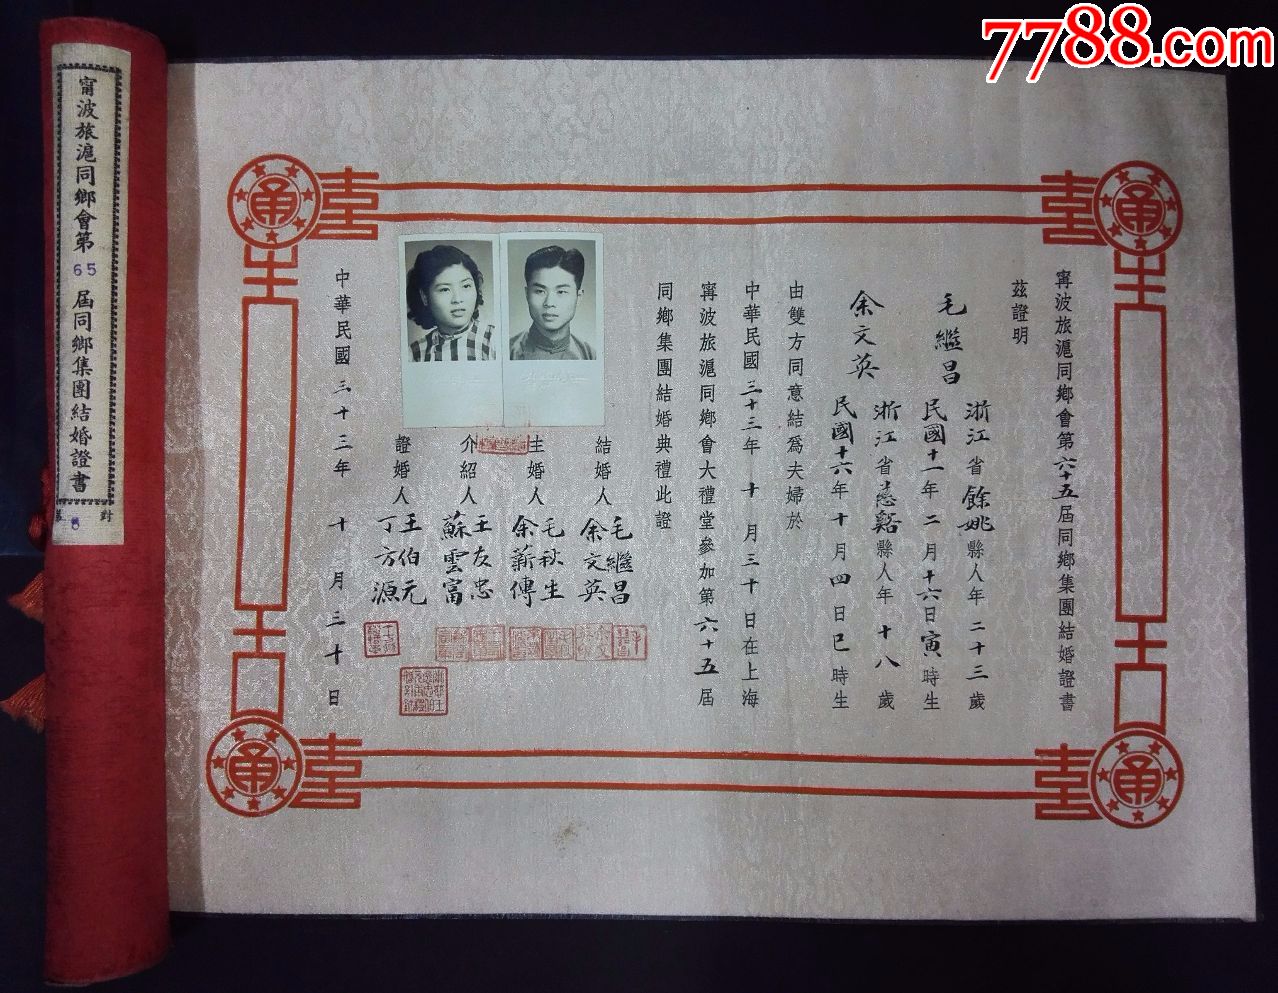 7788.com
甯波旅滬同鄉會第65屆同鄉集團結婚證書
第8對
甯波旅滬同鄉會第六十五屆同鄉集團結婚證書
茲證明
毛繼昌 浙江省餘姚縣人年二十三歲
民國十一年二月十六日寅時生
余文英 浙江省慈谿縣人年十八歲
民國十六年十月四日巳時生
由雙方同意結爲夫婦於
中華民國三十三年十月三十日在上海
甯波旅滬同鄉會大禮堂參加第六十五屆
同鄉集團結婚典禮此證
結婚人 毛繼昌
余文英
主婚人 毛秋生
余薪傳
介紹人 王友忠
蘇雲富
證婚人 王伯元
丁方源
中華民國三十三年十月三十日